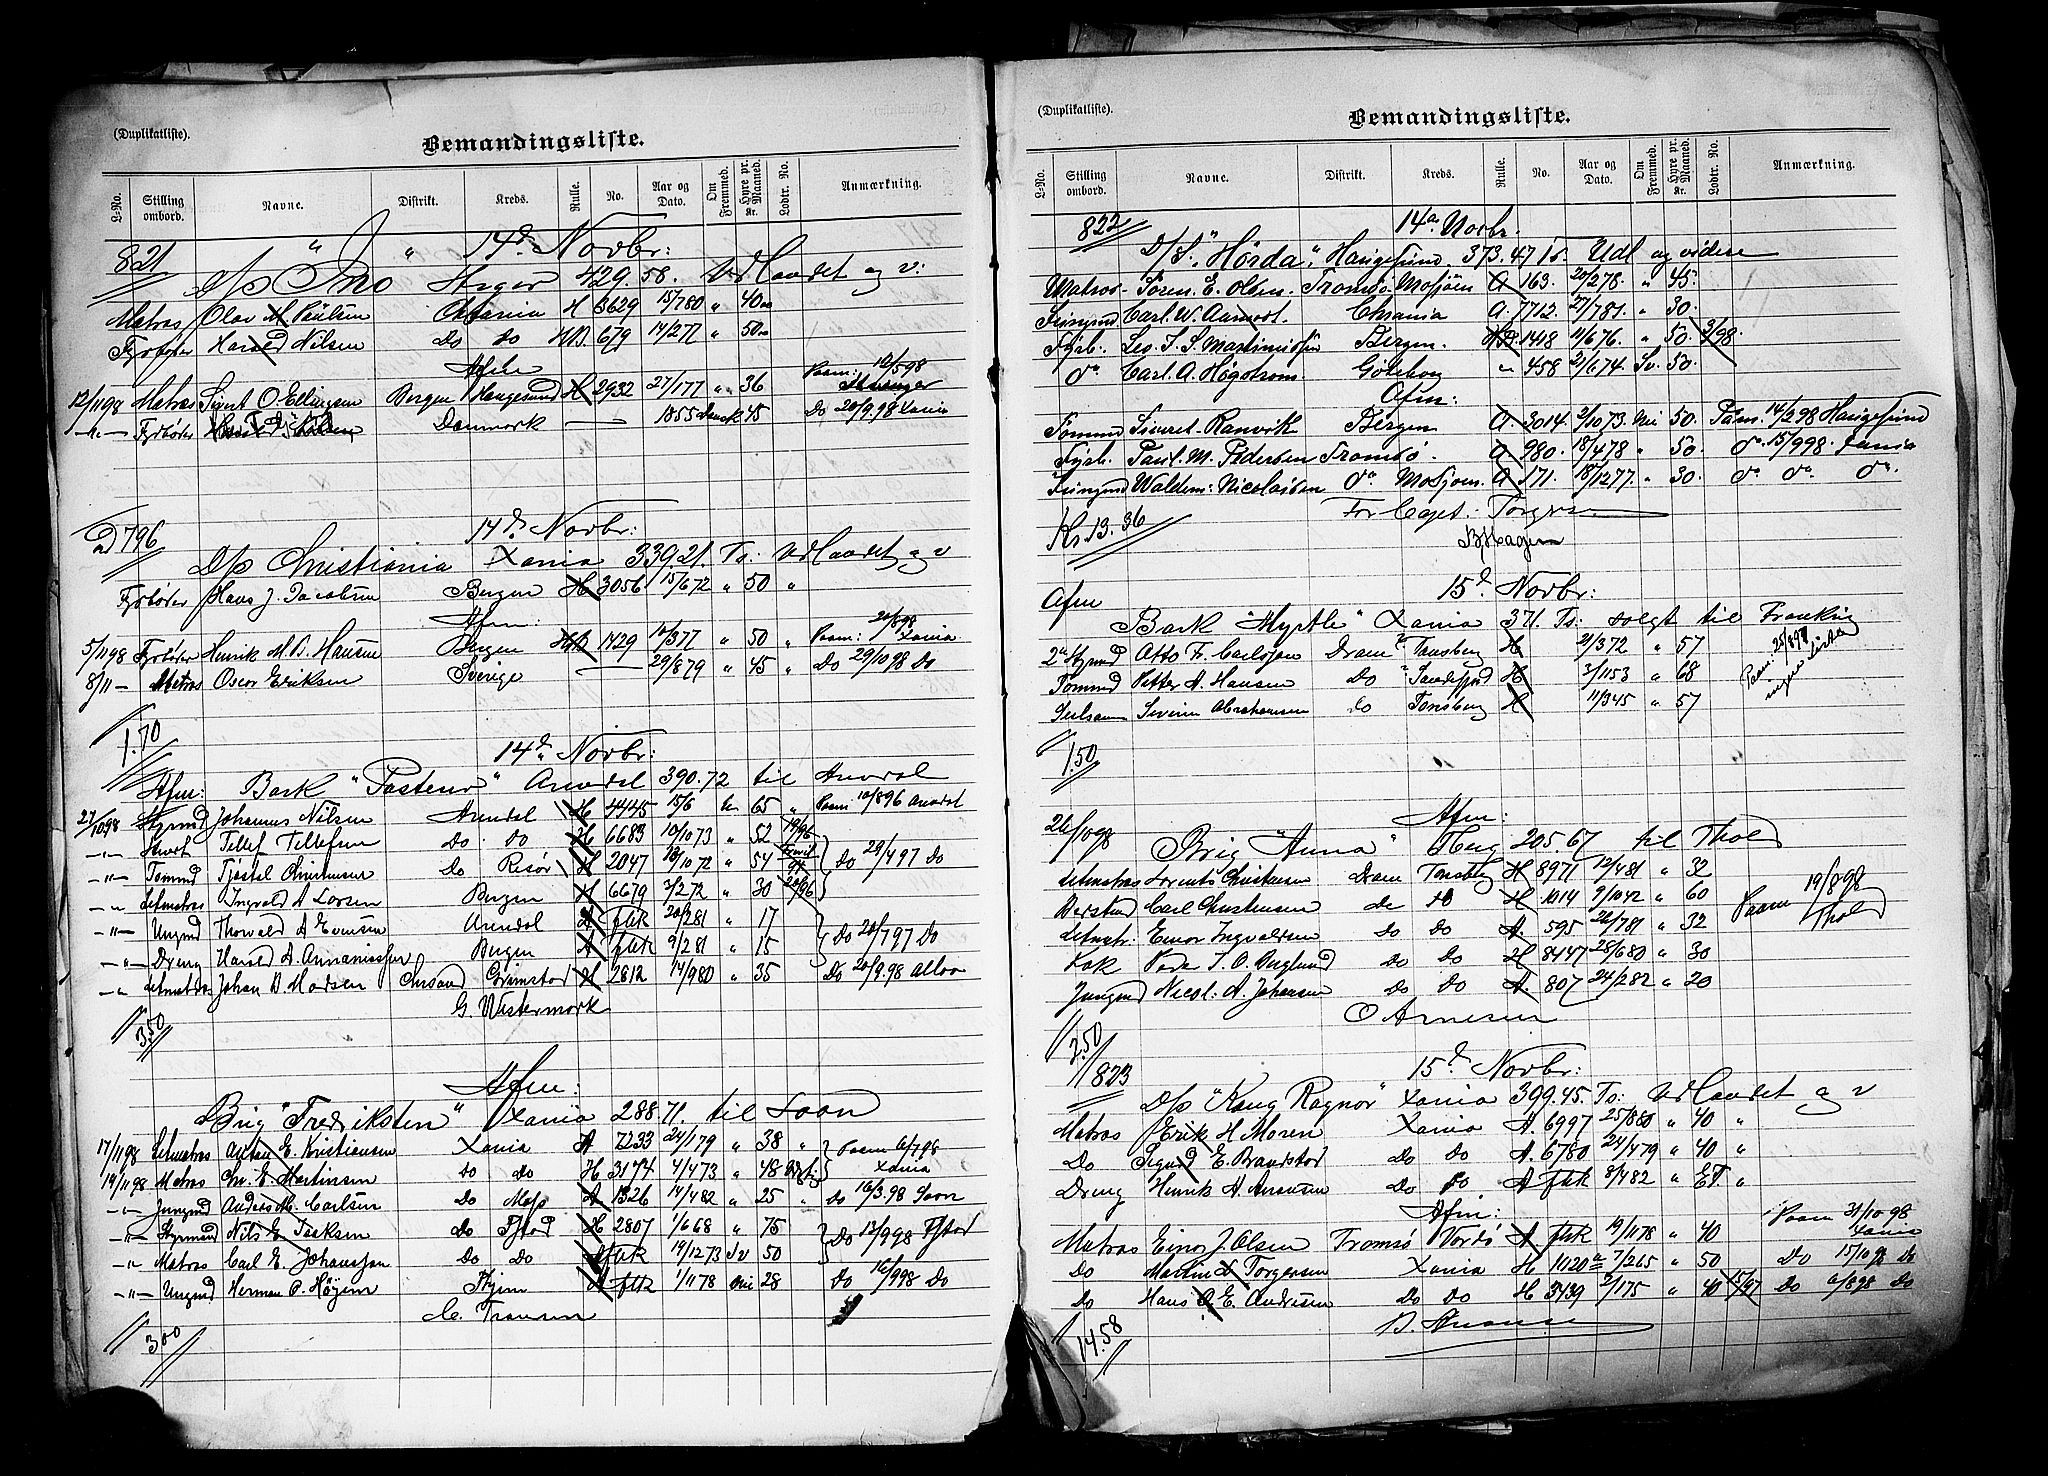 (Duplikatliste).
Bemandingsliste.
L-No. Stilling ombord. Navne. Distrikt. Kreds. Rulle. No. Aar og Dato. Om Fremmed. Hyre pr. Maaned. Kr. Lodtr. No. Anmærkning.
821 " " 14d Novbr:
D/S Ino 429.58. Udlandet og v:
Matros Olav M Paulsen Chrania H 3629 15/780 " 40
Fyrbøder Harald Nilsen Do Do HB 679 14/277 " 50
Afm
12/1198 Matros Sivert O. Ellingsen Bergen Haugesund H 2932 27/177 " 36 Paam: 12/598
Fyrbøder Danmark — 1855 Dansk 45 Do 20/9.98 Xania
D796 14d Novbr:
D/S Christiania Xania 339.21. Ts: Udlandet og v
Fyrbøder Hans J. Jacobsen Bergen H 3056 15/672 " 50 "
Afm:
5/1198 Fyrbøder Henrik M. B. Hansen Bergen HB 1429 12/377 " 50 " Paam: 20/898 Xania
8/11 — Matros Oscar Eriksen Sverige — 29/879 " 45 " Do 29/1098 Do
1.70
14d Novbr:
Afm: Bark "Pasteur" Arendal 390.72 til Arendal
27/1098 Styrmd Johannes Nilsen Arendal H 4445 15/6 65 " Paam 10/896 Arendal
—"— Stuert Tellef Tellefsen Do Do H 6683 10/1073 " 52 19/96
—"— Tømmd Tjøstel Christensen Do Risør H 2047 18/1072 " 54 Do 29/497 Do
—"— Letmatros Ingvald A Larsen Bergen H 6679 3/272 " 30 20/96
—"— Ungmd Thorvald A Evensen Arendal A fbk 20/281 " 17
—"— Dreng Harald A. Annanissen Bergen A fbk 9/281 " 15 Do 20/797 Do
—"— Letmat Johan B Madsen Chrsand Grimstad H 2812 14/980 " 35 Do 20/9.98 Alloa
G. Westermork
3.50
Afm:
Brig "Fredriksten" Xania 288.71. til Laon
17/1198 Letmatros Anton E. Kristiansen Xania A 7233 24/179 " 38 " Paam 6/798
19/1198 Matros Chr. E. Martinsen Do Do H 3174 4/473 " 48 Xania
—"— Jungmd Anders M. Carlsen Do Moss A 1326 14/482 " 25 " Do 16/3.98
—"— Styrmand Nils E. Isaksen Do Fstad H 2807 1/668 " 75 Do 13/998 Fstad
—"— Matros Carl E. Johansson Do Do fbk 19/1273 Sv 50
—"— Ungmd Herman P. Høyem A fbk 1/1178 28 Do 16/998 Do
C. Fransen
3.00
(Duplikatliste).
Bemandingsliste.
L-No. Stilling ombord. Navne. Distrikt. Kreds. Rulle. No. Aar og Dato. Om Fremmed. Hyre pr. Maaned. Kr. Lodtr. No. Anmærkning.
822 14de Novbr.
D/S. "Hørda" Haugesund. 373.47 Ts. Udl og videre
Matros Søren. E. Olsen. Tromsø Mosjøen A 163. 20/278. " 45.
Jungmd Carl. W. Aamodt. Chrania A. 7712. 27/781. " 30.
Fyrb. Leo. J. S. Martiniussen Bergen. HB. 1418 11/676. " 50. 3/98
do Carl. A. Høgstrøm. Göteborg " 458 21/674. Sv. 50.
Afm:
Tømmd Siverst. Ranvik Bergen A. 3014. 2/1073. 50. Paam. 14/298 Haugesund
Fyrb. Paul. M. Pedersen Tromsø. A 980. 18/478 " 50. do 15/998. Xania
Jungmd Waldem: Nicolaisen do Mosjøen. A 171. 18/1277. " 30. do do do
Kr. 13.36 For Capt. Torgersen
B Hagen
Afm 15d Novbr:
Bark "Myrtle" Xania 371. Ts. solgt til Frankrig
2den Styrmd Otto F. Carlsson Dram Tønsberg H 21/372 " 57 Paam. 25/898
Tømmd Petter A. Hansen Do Sandefjord H 3/1153 " 68
Seilsmm Severin Abrahamsen Do Tønsberg H 11/345 " 57
1.50
26/1098 Afm:
Brig "Anna" Tbrg 205.67 til Thold
Letmatros Lorents Christensen Dram Tønsberg H 8971 12/481 " 32
Bestmd Carl Christensen do do H 1014 9/1042 " 60 Paam 19/898
Letmatr: Einar Ingvaldsen Do Do A. 595 26/781 " 32 Thold
Kok Peder J. O. Berglund Do Do H 8447 28/680 " 30
Jungmd Nicol: A. Johansen Do Do A. 807 24/282 " 20
O Arnesen
2.50
823 15d Novbr:
D/S "Kong Ragnar" Xania 399.45. Ts: Udlandet og v
Matros Erik H. Moren Xania A. 6997 25/880 " 40 "
Do Sigurd E. Brandstad Do Do A. 6780 24/479 " 40 "
Dreng Henrik A. Amundsen Do Do A fbk 8/482 " ET "
Afm: Paam 31/1098
Matros Einar J. Olsen Tromsø Vardø A fbk 19/1178 " 40 Xania
Do Martin A Torgersen Xania H 11120a 7/265 " 50 Do 15/1098 Do
Do Hans A. E. Andersen Do Do H 3439 2/175 " 40 15/97 Do 6/898 Do
14.58